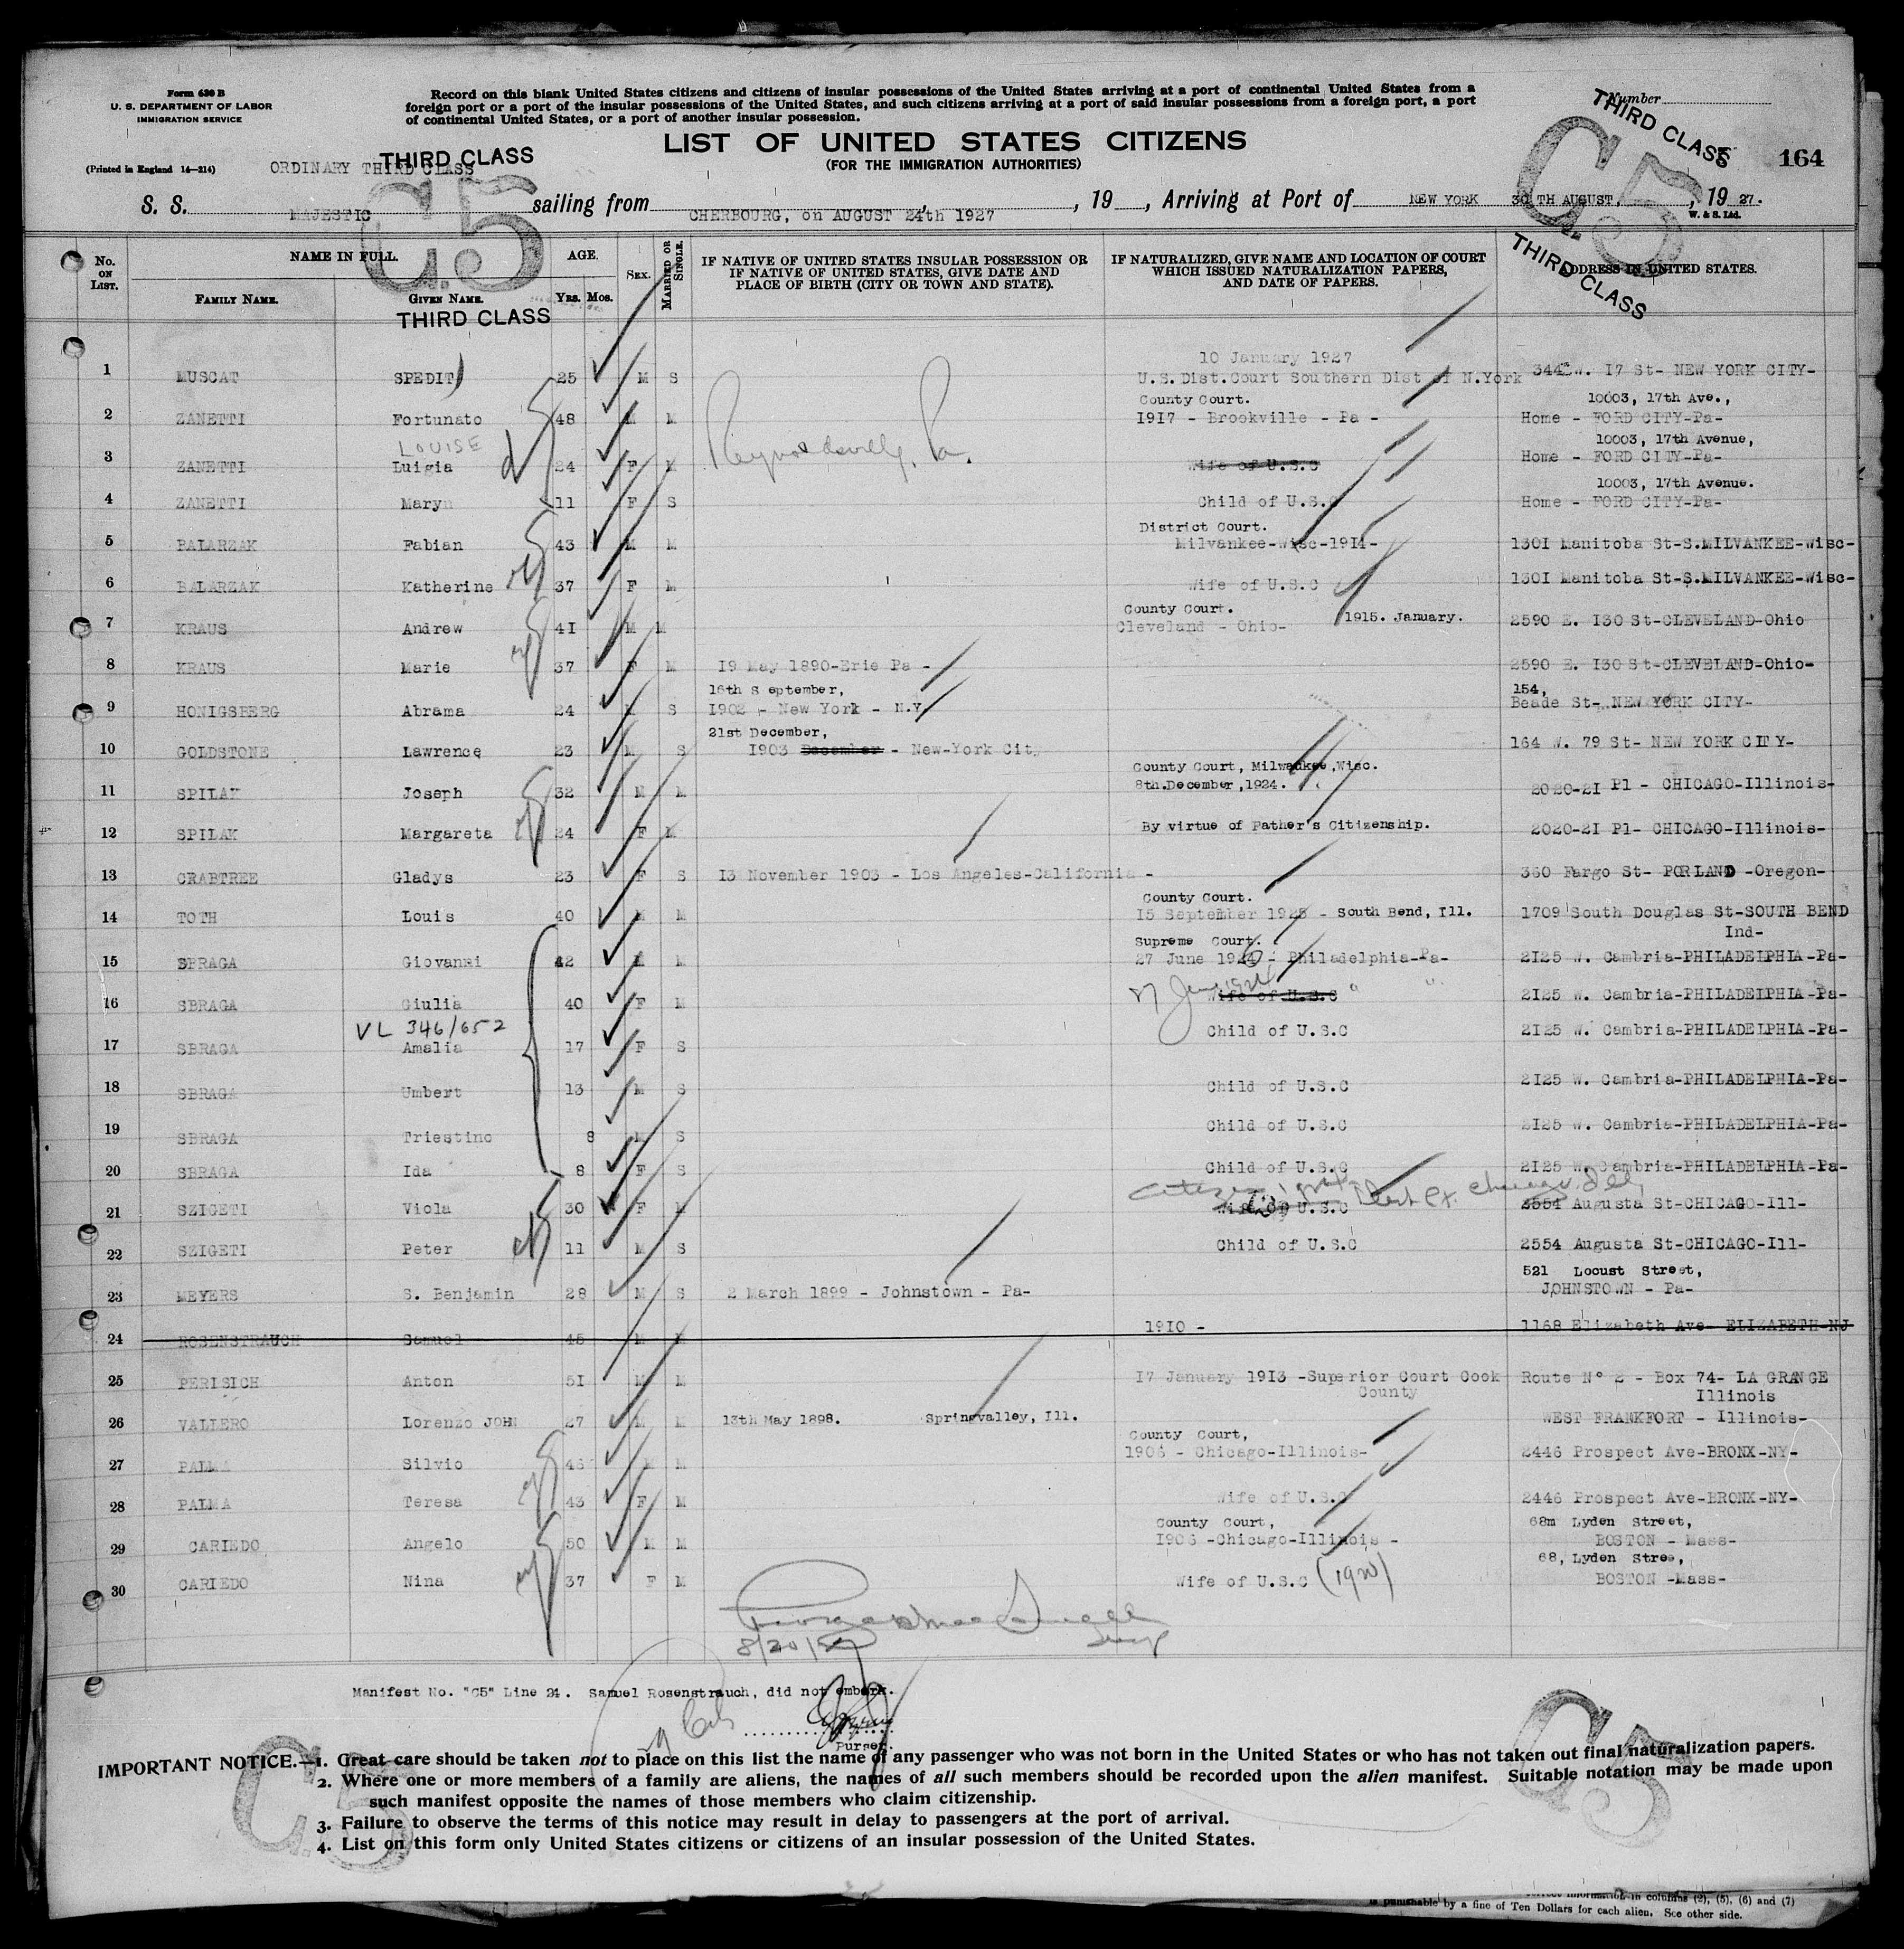 Form 630 B
U. S. DEPARTMENT OF LABOR
IMMIGRATION SERVICE
(Printed in England 14—214)
Record on this blank United States citizens and citizens of insular possessions of the United States arriving at a port of continental United States from a
foreign port or a port of the insular possessions of the United States, and such citizens arriving at a port of said insular possessions from a foreign port, a port
of continental United States, or a port of another insular possession.
Number
THIRD CLASS
164
LIST OF UNITED STATES CITIZENS
(FOR THE IMMIGRATION AUTHORITIES)
ORDINARY THIRD CLASS
THIRD CLASS
C.5
C5
S. S. MAJESTIC sailing from CHERBOURG, on AUGUST 24th 1927, 19 , Arriving at Port of NEW YORK 30 TH AUGUST, , 19 27.
W. & S. Ltd.
THIRD CLASS
No. ON LIST.
NAME IN FULL.
FAMILY NAME. GIVEN NAME.
THIRD CLASS
AGE.
Yrs. Mos.
SEX.
MARRIED OR SINGLE.
IF NATIVE OF UNITED STATES INSULAR POSSESSION OR
IF NATIVE OF UNITED STATES, GIVE DATE AND
PLACE OF BIRTH (CITY OR TOWN AND STATE).
IF NATURALIZED, GIVE NAME AND LOCATION OF COURT
WHICH ISSUED NATURALIZATION PAPERS,
AND DATE OF PAPERS.
ADDRESS IN UNITED STATES.
10 January 1927
1 MUSCAT SPEDIT 25 M S U.S.Dist.Court Southern Dist of N.York 344 W. 17 St- NEW YORK CITY-
County Court. 10003, 17th Ave.,
2 ZANETTI Fortunato 48 M M 1917 - Brookville - Pa - Home - FORD CITY-Pa-
LOUISE 10003, 17th Avenue,
3 ZANETTI Luigia 24 F M Reynoldsville, Pa. Wife of U.S.C Home - FORD CITY-Pa-
10003, 17th Avenue.
4 ZANETTI Mary 11 F S Child of U.S.C Home - FORD CITY-Pa-
District Court.
5 BALARZAK Fabian 43 M M Milvankee-Wisc-1914- 1301 Manitoba St-S.MILVANKEE-Wisc-
6 BALARZAK Katherine 37 F M Wife of U.S.C 1301 Manitoba St-S.MILVANKEE-Wisc-
County Court.
7 KRAUS Andrew 41 M M Cleveland - Ohio- 1915. January. 2590 E. 130 St-CLEVELAND-Ohio
8 KRAUS Marie 37 F M 19 May 1890-Erie Pa - 2590 E. 130 St-CLEVELAND-Ohio-
16th S eptember, 154,
9 HONIGSBERG Abrama 24 S 1902 - New York - N.Y. Beade St- NEW YORK CITY-
21st December,
10 GOLDSTONE Lawrence 23 M S 1903 December - New-York City 164 W. 79 St- NEW YORK CITY-
County Court, Milwaukee, Wisc.
11 SPILAK Joseph 32 M M 8th.December,1924. 2020-21 Pl - CHICAGO-Illinois-
12 SPILAK Margareta 24 F M By virtue of Father's Citizenship. 2020-21 Pl- CHICAGO-Illinois-
13 CRABTREE Gladys 23 F S 13 November 1903 - Los Angeles-California - 360 Fargo St- PORLAND -Oregon-
County Court.
14 TOTH Louis 40 M M 15 September 1925 - South Bend, Ill. 1709 South Douglas St-SOUTH BEND
Ind-
Supreme Court.
15 SBRAGA Giovanni 42 M M 27 June 1924 - Philadelphia-Pa- 2125 W. Cambria-PHILADELPHIA-Pa-
16 SBRAGA Giulia 40 F M 27 June 1924 Wife of U.S.C " " 2125 W. Cambria-PHILADELPHIA-Pa-
VL 346/652
17 SBRAGA Amalia 17 F S Child of U.S.C 2125 W. Cambria-PHILADELPHIA-Pa-
18 SBRAGA Umbert 13 M S Child of U.S.C 2125 W. Cambria-PHILADELPHIA-Pa-
19 SBRAGA Triestino 8 M S Child of U.S.C 2125 W. Cambria-PHILADELPHIA-Pa-
20 SBRAGA Ida 8 F S Child of U.S.C 2125 W. Cambria-PHILADELPHIA-Pa-
Citizen Dist Ct. Chicago. Ill
21 SZIGETI Viola 30 F M Wife of U.S.C 2554 Augusta St-CHICAGO-Ill-
22 SZIGETI Peter 11 M S Child of U.S.C 2554 Augusta St-CHICAGO-Ill-
521 Locust Street,
23 MEYERS S. Benjamin 28 M S 2 March 1899 - Johnstown - Pa- JOHNSTOWN - Pa-
24 ROSENSTRAUCH Samuel 45 M M 1910 - 1168 Elizabeth Ave- ELIZABETH-NJ
25 PERISICH Anton 51 M M 17 January 1913 -Superior Court Cook Route N° 2 - Box 74- LA GRANGE
County Illinois
26 VALLERO Lorenzo JOHN 27 M M 13th May 1898. Springvalley, Ill. WEST FRANKFORT - Illinois-
County Court,
27 PALMA Silvio 46 M M 1906 - Chicago-Illinois- 2446 Prospect Ave-BRONX-NY-
28 PALMA Teresa 43 F M Wife of U.S.C 2446 Prospect Ave-BRONX-NY-
County Court, 68m Lyden Street,
29 CARIEDO Angelo 50 M M 1906 -Chicago-Illinois - BOSTON - Mass-
68, Lyden Stree,
30 CARIEDO Nina 37 F M Wife of U.S.C BOSTON -Mass-
Manifest No. "C5" Line 24. Samuel Rosenstrauch, did not embark.
Purser.
IMPORTANT NOTICE.—1. Great care should be taken not to place on this list the name of any passenger who was not born in the United States or who has not taken out final naturalization papers.
2. Where one or more members of a family are aliens, the names of all such members should be recorded upon the alien manifest. Suitable notation may be made upon
such manifest opposite the names of those members who claim citizenship.
3. Failure to observe the terms of this notice may result in delay to passengers at the port of arrival.
4. List on this form only United States citizens or citizens of an insular possession of the United States.
C5
C5
information in columns (2), (5), (6) and (7)
is punishable by a fine of Ten Dollars for each alien. See other side.